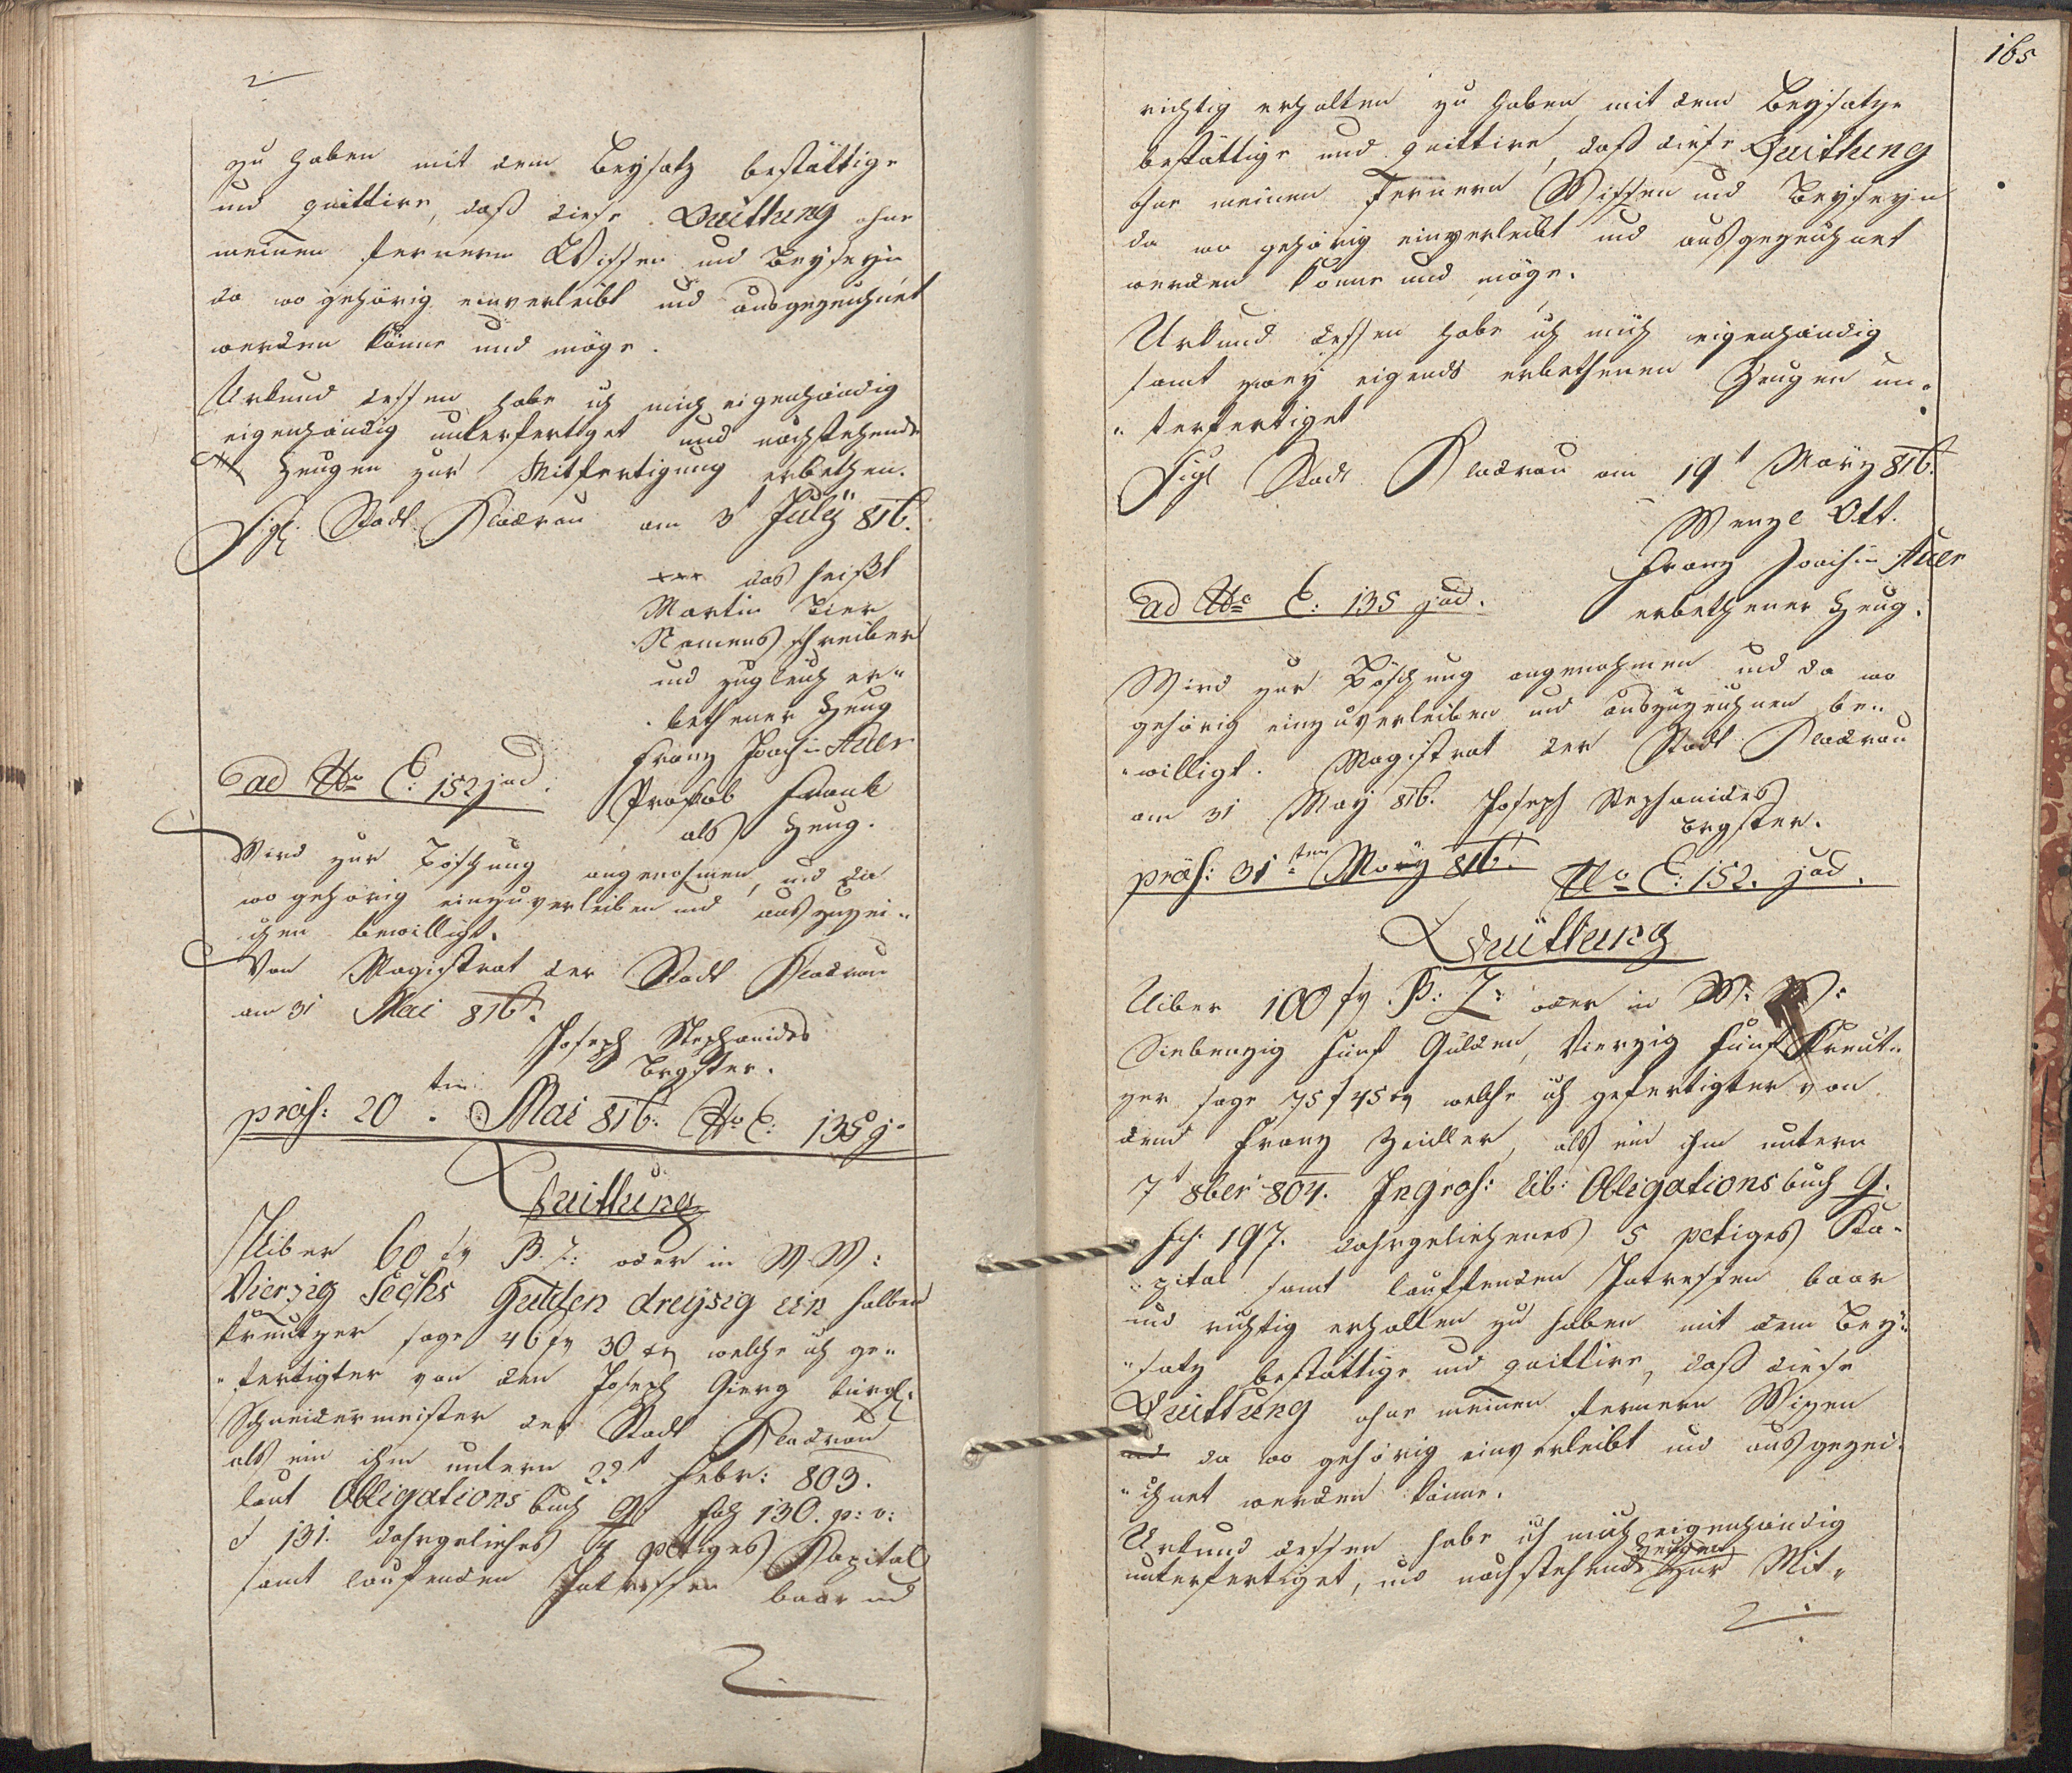 zu haben mit dem Beysatz bestättige
und quittire, daß diese Quittung ohne
meinen fernern Wissen und Beyseyn
da wo gehörig einverleibt und ausgezeichnet
werden könne und möge.
Urkund dessen habe ich mich eigenhändig
eigenhändig unterfertiget und nachstehende
Zeugen zur Mitfertigung erbethen.
Sigl. Stadt Kladrau am 3t July 816.
xxx das heißt
Martin Bier
Namensschreiber
und zugleich er„
bethener Zeug
Franz Joachim Auer
ad No E: 152 jud.
Prokob Frank
als Zeug.
Wird zur Löschung angenohmen, und da
wo gehörig einzuverleiben und auszuzei„
chen bewilligt.
Von Magistrat der Stadt Kladrau
am 31 Mai 816.
Joseph Stephanides
Brgster.
präs: 20ten Mai 816. No E: 135 j.
Quittung
Uiber 60 fr B. Z: oder in W W:
Vierzig Sechs Gulden dreysig ein halben
Kreutzer sage 46 fr 30 xr welche ich ge„
„fertigter von den Joseph Gierg bürgl:
Schneidermeister der Stadt Kladrau
als ein ihm untern 22t Febr: 803.
laut Obligations buch 9. fol 130. p: v:
et 131. dahrgeliehes 4 pctiges Kapital
samt laufenden Intressen baar und
165
richtig erhalten zu haben, mit dem Beysatze
bestättige und quittire, daß diese Quittung
ohne meinen Fernern Wissen und Beyseyn
da wo gehörig einverleibt und ausgezeichnet
werden könne und möge.
Urkund dessen habe ich mich eigenhändig
samt zwey eigends erbethenen Zeugen un„
„terfertiget
Sigl Stadt Kladrau am 19t März 816.
Wenzl Ott.
Franz Joachim Auer
ad No E: 135 jud.
erbethener Zeug.
Wird zur Löschung angenohmen und da wo
gehörig einzuverleiben und auszuzeichnen be„
„willigt. Magistrat der Stadt Kladrau
am 31 May 816. Joseph Stephanides
Brgster.
präs: 31ten May 816. No E: 152. jud.
Quittung
Uiber 100 fr. B: Z: oder in W: W:
Siebenzig fünf Gulden, Vierzig fünf Kreut„
zer sage 75 f 45 xr welche ich gefertigter von
dem Franz Zeidler, als ein ihm untern
7t 8ber 804. Ingros: lib: Obligationsbuch 9.
fol. 197. dahrgeliehenes 5 pctiges Ka„
„pital samt lauffenden Intressen baar
und richtig erhalten zu haben mit dem Bey„
„satz bestättige und quittire, daß diese
Quittung ohne meinen fernern Wißen
und da wo gehörig einverleibt und ausgezei„
„chnet werden könne.
Urkund dessen habe ich mich eigenhändig
unterfertiget, und nachstehende Zeugen zur Mit„